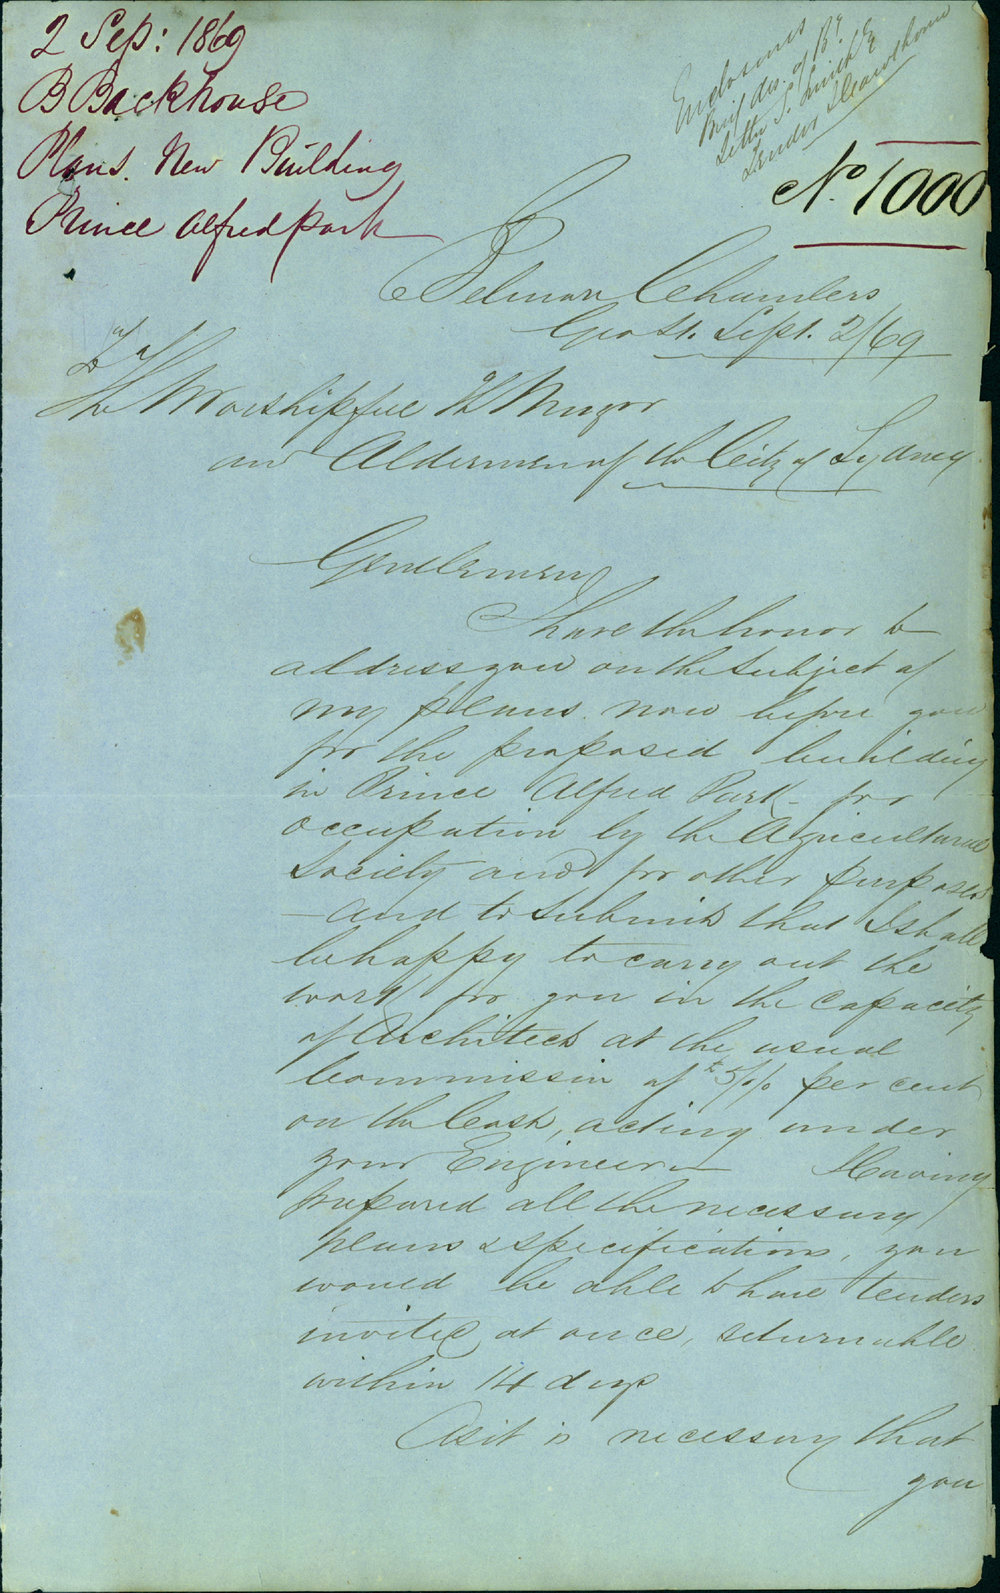 2 Sep: 1869
B Backhouse
Plans. New Building
Prince Alfred park
Enclosures
Letter S. Smith &
Tender Hawthorn
No. 1000
Belmore Chambers
Geo St. Sept. 2/69
The Worshipful The Mayor
and Aldermen of the City of Sydney
Gentlemen
I have the honor to
address you on the subject of
my plans now before you
for the proposed building
in Prince Alfred Park for
occupation by the Agricultural
Society and for other purposes
- and to submit that I shall
be happy to carry out the
work for you in the capacity
of Architect at the usual
Commission of 5 per cent
on the Cost, acting under
your Engineer - Having
prepared all the necessary
plans & specifications, you
would be able to have tenders
invited at once, returnable
within 14 days
As it is necessary that
you